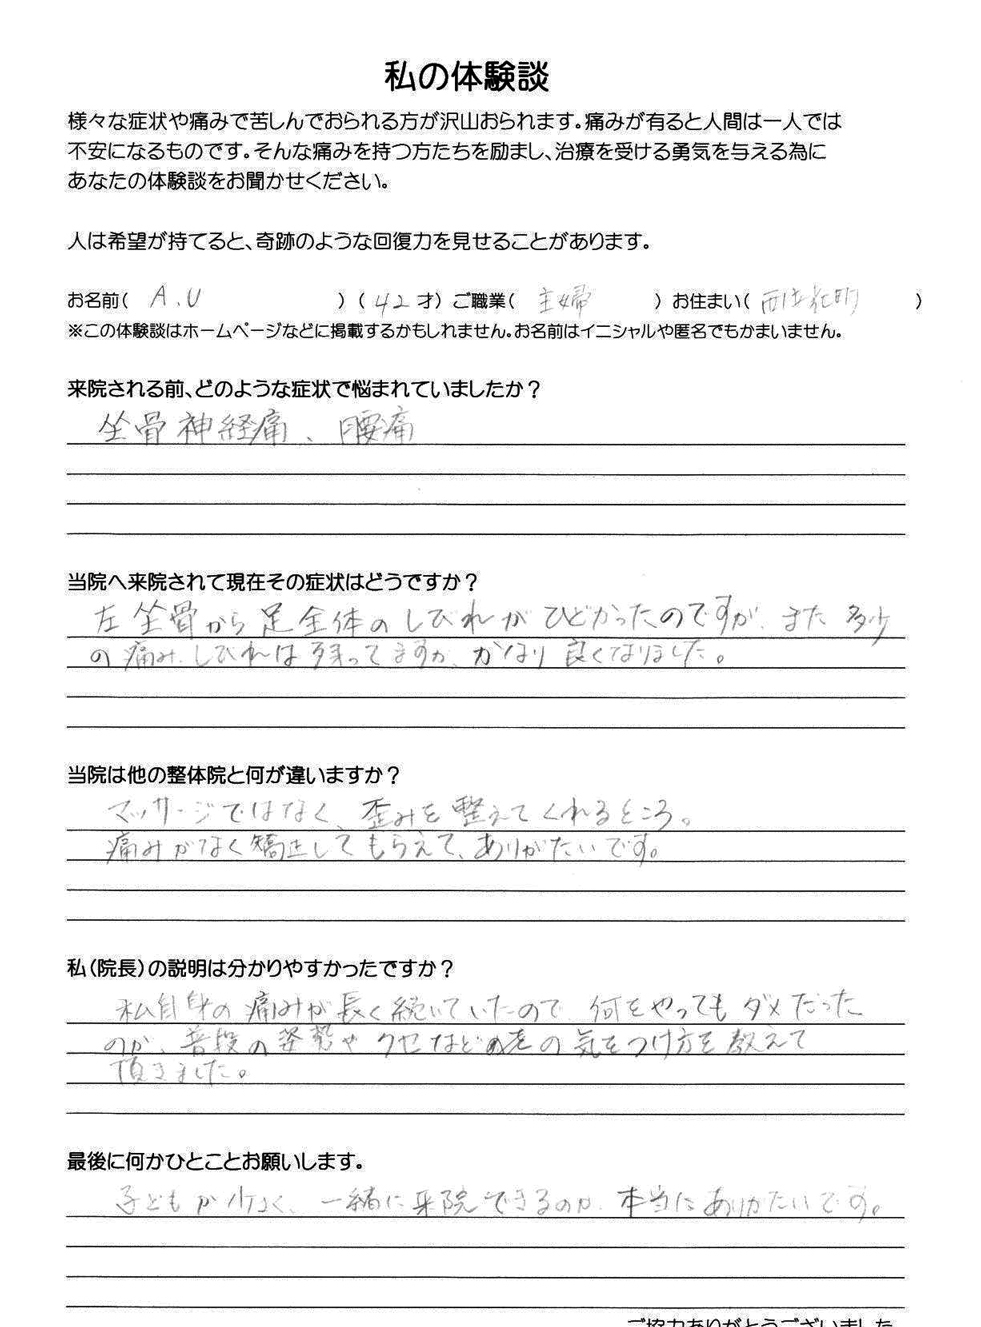 私の体験談
様々な症状や痛みで苦しんでおられる方が沢山おられます。痛みが有ると人間は一人では
不安になるものです。そんな痛みを持つ方たちを励まし、治療を受ける勇気を与える為に
あなたの体験談をお聞かせください。
人は希望が持てると、奇跡のような回復力を見せることがあります。
お名前( A.U )( 42 才) ご職業( 主婦 ) お住まい( )
※この体験談はホームページなどに掲載するかもしれません。お名前はイニシャルや匿名でもかまいません。
来院される前、どのような症状で悩まれていましたか?
坐骨神経痛、腰痛
当院へ来院されて現在その症状はどうですか?
左坐骨から足全体のしびれがひどかったのですが、まだ多少
の痛み、しびれは残ってますが、かなり良くなりました。
当院は他の整体院と何が違いますか?
マッサージではなく、歪みを整えてくれるところ。
痛みがなく矯正してもらえて、ありがたいです。
私(院長)の説明は分かりやすかったですか?
私自身の痛みが長く続いていたので、何をやってもダメだった
のが、普段の姿勢やクセなどの の気をつけ方を教えて
頂きました。
最後に何かひとことお願いします。
子どもが小さく、一緒に来院できるのが、本当にありがたいです。
ご協力ありがとうございました